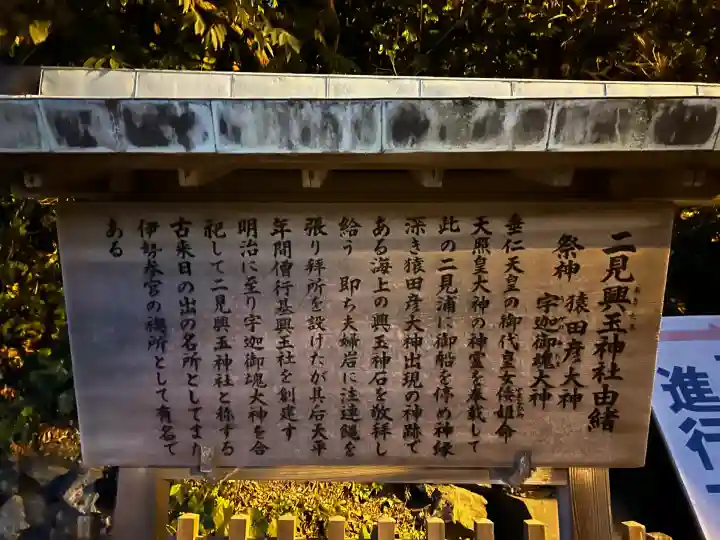 二見興玉神社由緒
祭神 猿田彦大神
宇迦御魂大神
垂仁天皇の御代皇女倭姫命
天照皇大神の神霊を奉載して
此の二見浦に御船を停め神縁
深き猿田彦大神出現の神跡で
ある海上の興玉神石を敬拝し
給う 即ち夫婦岩に注連縄を
張り拝所を設けたが其后天平
年間僧行基興玉社を創建す
明治に至り宇迦御魂大神を合
祀して二見興玉神社と称する
古来日の出の名所としてまた
伊勢参宮の禊所として有名で
ある
進行